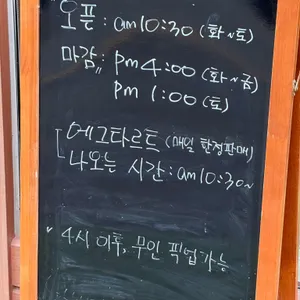 오픈: am10:30 (화~토)
마감: pm4:00 (화~금)
pm 1:00 (토)
에그타르트 (매일 한정판매)
나오는 시간: am10:30~
"4시 이후, 무인 픽업가능